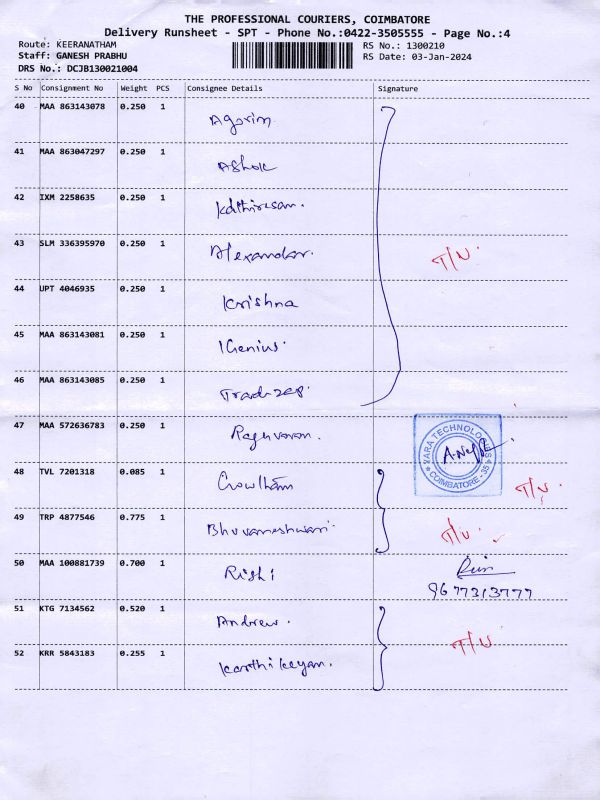 THE PROFESSIONAL COURIERS, COIMBATORE
Delivery Runsheet - SPT - Phone No.:0422-3505555 - Page No.:4
Route: KEERANATHAM RS No.: 1300210
Staff: GANESH PRABHU RS Date: 03-Jan-2024
DRS No.: DCJB130021004
S No Consignment No Weight PCS Consignee Details Signature
40 MAA 863143078 0.250 1
41 MAA 863047297 0.250 1 Ashok
42 IXM 2258635 0.250 1 Kathiresan.
43 SLM 336395970 0.250 1 Alexandar. T/U.
44 UPT 4046935 0.250 1 Krishna
45 MAA 863143081 0.250 1 IGenius.
46 MAA 863143085 0.250 1
47 MAA 572636783 0.250 1 Raghuvaran. COIMBATORE - 35
48 TVL 7201318 0.085 1 Gowtham T/U.
49 TRP 4877546 0.775 1 Bhuvaneshwari. T/U.
50 MAA 100881739 0.700 1 Rishi
9677313777
51 KTG 7134562 0.520 1 Andrew.
52 KRR 5843183 0.255 1 Karthikeyan. T/U